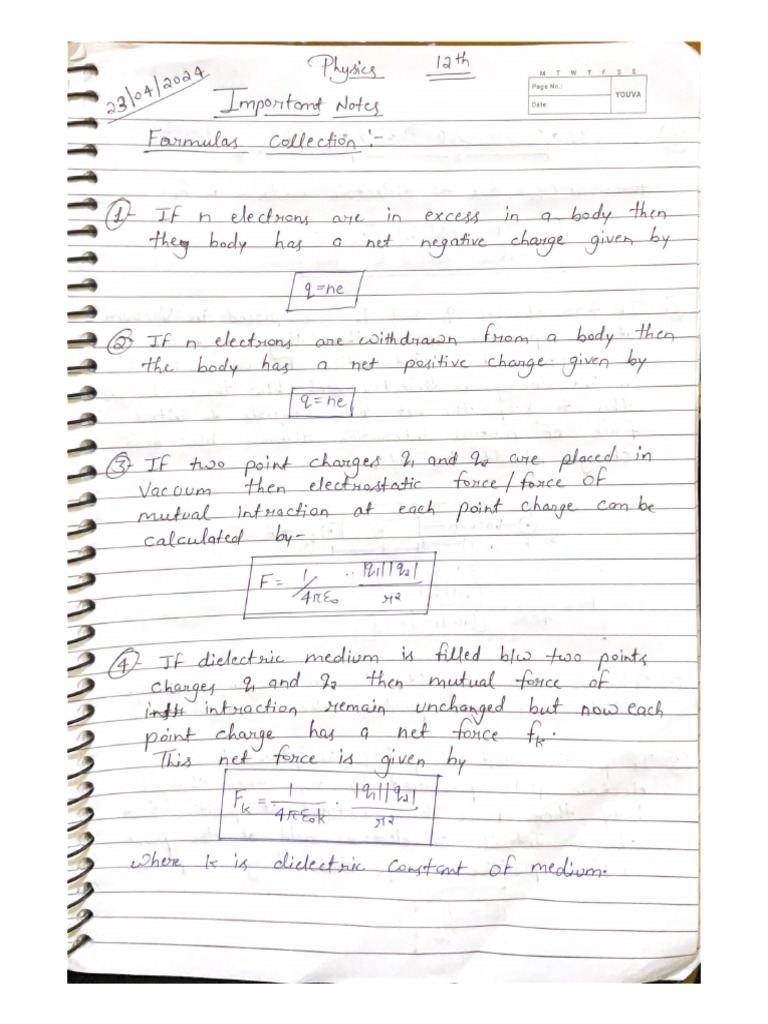 Physics 12th
23/04/2024
M T W T F S S
Page No.:
Date:
YOUVA
Important Notes
Formulas Collection :-
1- If n electrons are in excess in a body then
they body has a net negative charge given by
q=ne
2- If n electrons are withdrawn from a body then
the body has a net positive charge given by
q=ne
3- If two point charges q1 and q2 are placed in
Vacoum then electrostatic force/force of
mutual intraction at each point charge can be
calculated by-
F = 1/4πε0 . |q1||q2|/r²
4- If dielectric medium is filled b/w two points
charges q1 and q2 then mutual force of
intraction remain unchanged but now each
point charge has a net force fk.
This net force is given by
Fk = 1/4πε0k . |q1||q2|/r²
where k is dielectric constant of medium.